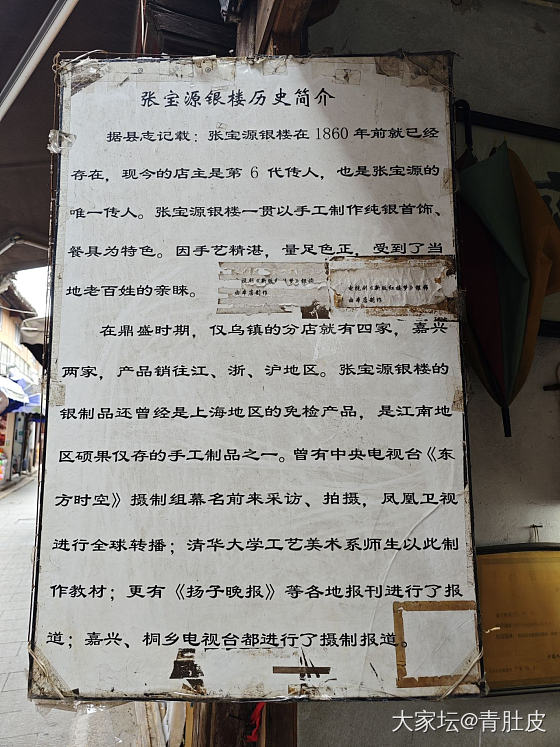 张宝源银楼历史简介
据县志记载：张宝源银楼在 1860 年前就已经
存在，现今的店主是第 6 代传人，也是张宝源的
唯一传人。张宝源银楼一贯以手工制作纯银首饰、
餐具为特色。因手艺精湛，量足色正，受到了当
地老百姓的亲睐。
电视剧《新版红楼梦》银饰
由本店制作
在鼎盛时期，仅乌镇的分店就有四家，嘉兴
两家，产品销往江、浙、沪地区。张宝源银楼的
银制品还曾经是上海地区的免检产品，是江南地
区硕果仅存的手工制品之一。曾有中央电视台《东
方时空》摄制组幕名前来采访、拍摄，凤凰卫视
进行全球转播；清华大学工艺美术系师生以此制
作教材；更有《扬子晚报》等各地报刊进行了报
道；嘉兴、桐乡电视台都进行了摄制报道。
大家坛@青肚皮